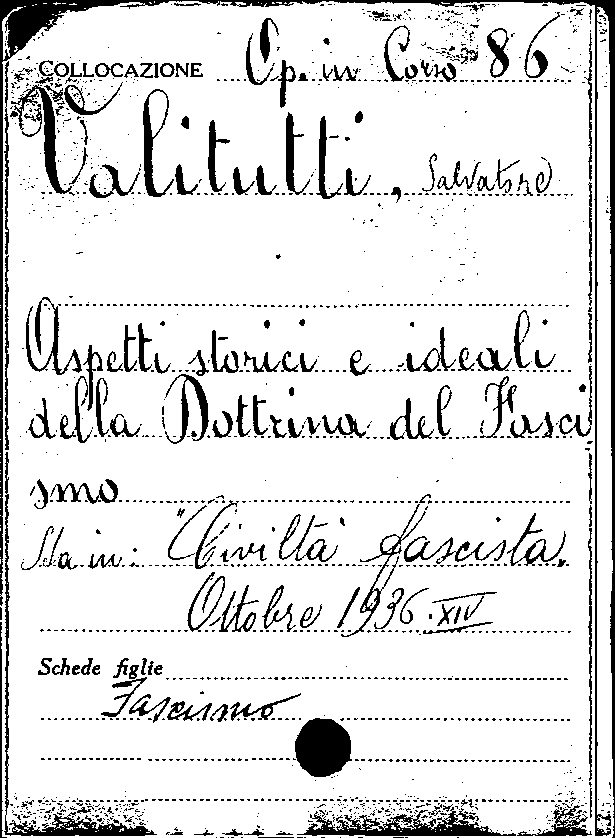 COLLOCAZIONE Op. in Corso 86
Valitutti, Salvatore
Aspetti storici e ideali
della Dottrina del Fasci
smo
Sta in: "Civiltà fascista.
Ottobre 1936.XIV
Schede figlie
Fascismo